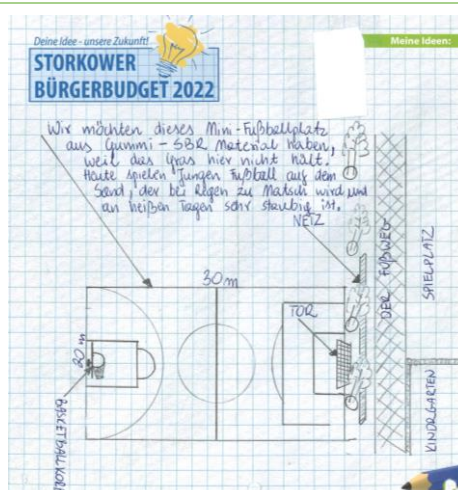 Deine Idee - unsere Zukunft!
STORKOWER
BÜRGERBUDGET 2022
Meine Ideen:
Wir möchten dieses Mini-Fußballplatz
aus Gummi-SBR Material haben,
weil das Gras hier nicht hält.
Heute spielen Jungen Fußball auf dem
Sand, der bei Regen zu Matsch wird und
an heißen Tagen sehr staubig ist.
NETZ
30m
TOR
DER FUßWEG
SPIELPLATZ
KINDRGARTEN
20m
BASKETBALLKORB